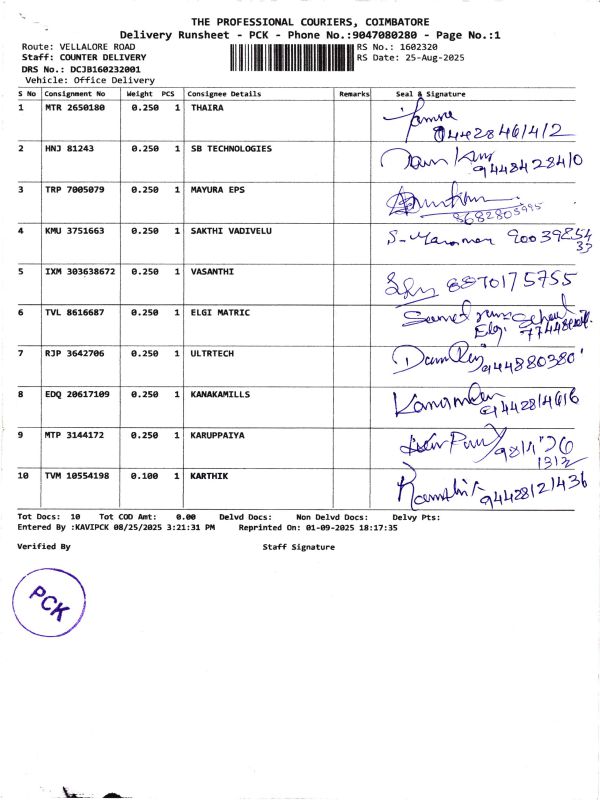 THE PROFESSIONAL COURIERS, COIMBATORE
Delivery Runsheet - PCK - Phone No.:9047080280 - Page No.:1
Route: VELLALORE ROAD RS No.: 1602320
Staff: COUNTER DELIVERY RS Date: 25-Aug-2025
DRS No.: DCJB160232001
Vehicle: Office Delivery
S No Consignment No Weight PCS Consignee Details Remarks Seal & Signature
1 MTR 2650180 0.250 1 THAIRA
2 HNJ 81243 0.250 1 SB TECHNOLOGIES
9448428410
3 TRP 7005079 0.250 1 MAYURA EPS
8682805995
4 KMU 3751663 0.250 1 SAKTHI VADIVELU
5 IXM 303638672 0.250 1 VASANTHI 8870175755
6 TVL 8616687 0.250 1 ELGI MATRIC
Elgi
7 RJP 3642706 0.250 1 ULTRTECH
8 EDQ 20617109 0.250 1 KANAKAMILLS
9442814616
9 MTP 3144172 0.250 1 KARUPPAIYA
1312
10 TVM 10554198 0.100 1 KARTHIK
94428121436
Tot Docs: 10 Tot COD Amt: 0.00 Delvd Docs: Non Delvd Docs: Delvy Pts:
Entered By :KAVIPCK 08/25/2025 3:21:31 PM Reprinted On: 01-09-2025 18:17:35
Verified By Staff Signature
PCK